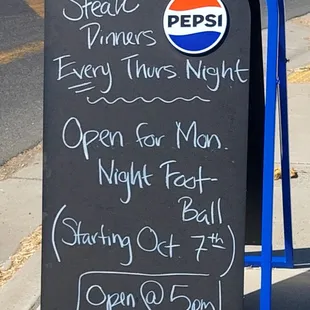 Steak
Dinners
PEPSI
Every Thurs Night
Open for Mon.
Night Foot-
Ball
(Starting Oct. 7th)
Open @ 5pm